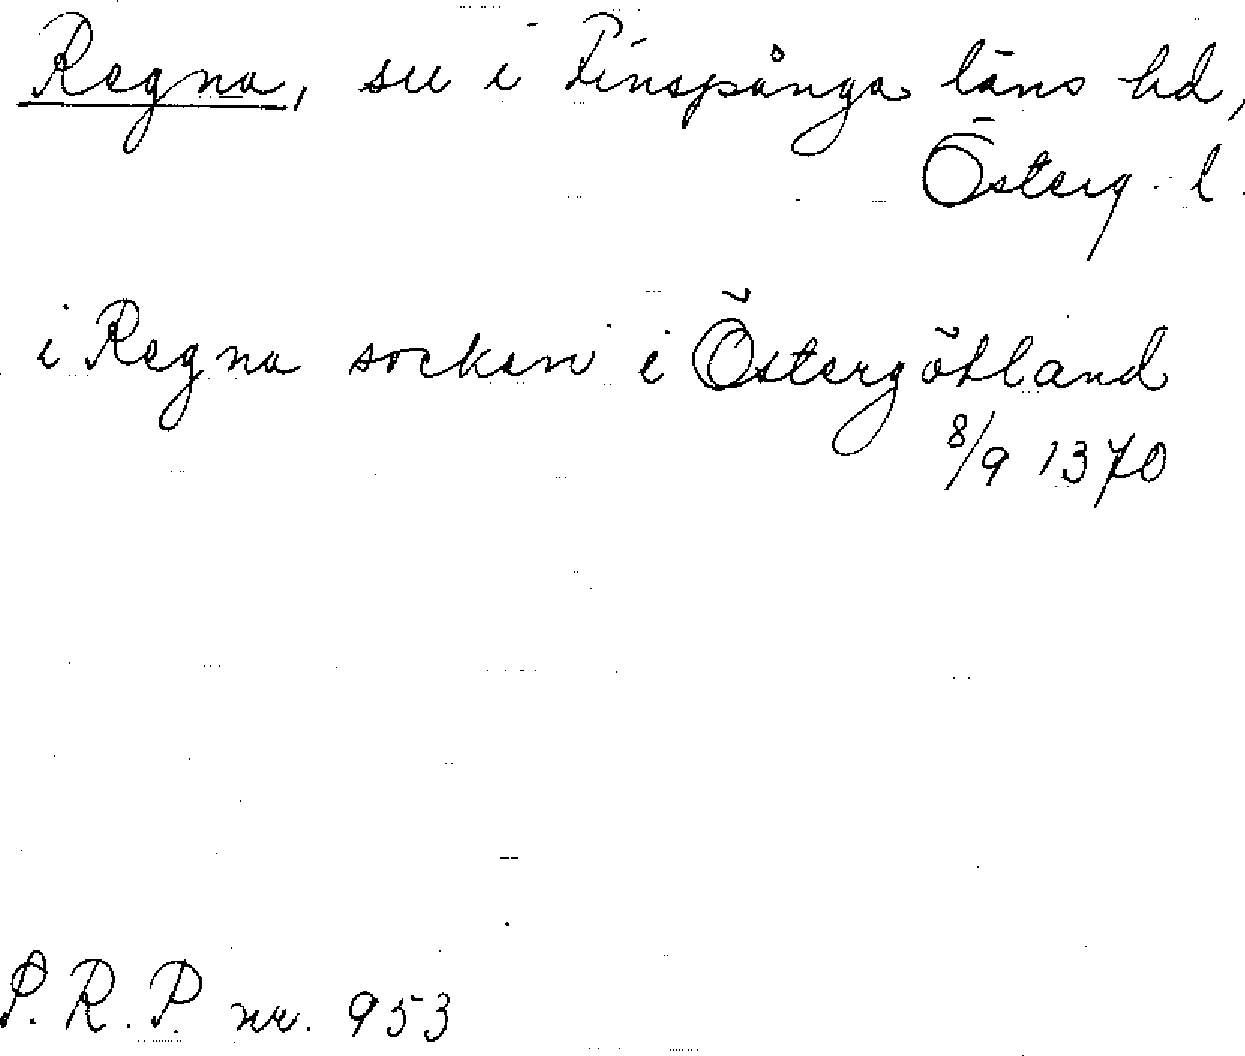 Regna, sn i Finspånga läns hd,
Österg. l.
i Regna socken i Östergötland
8/9 1370
P.R.P. nr. 953